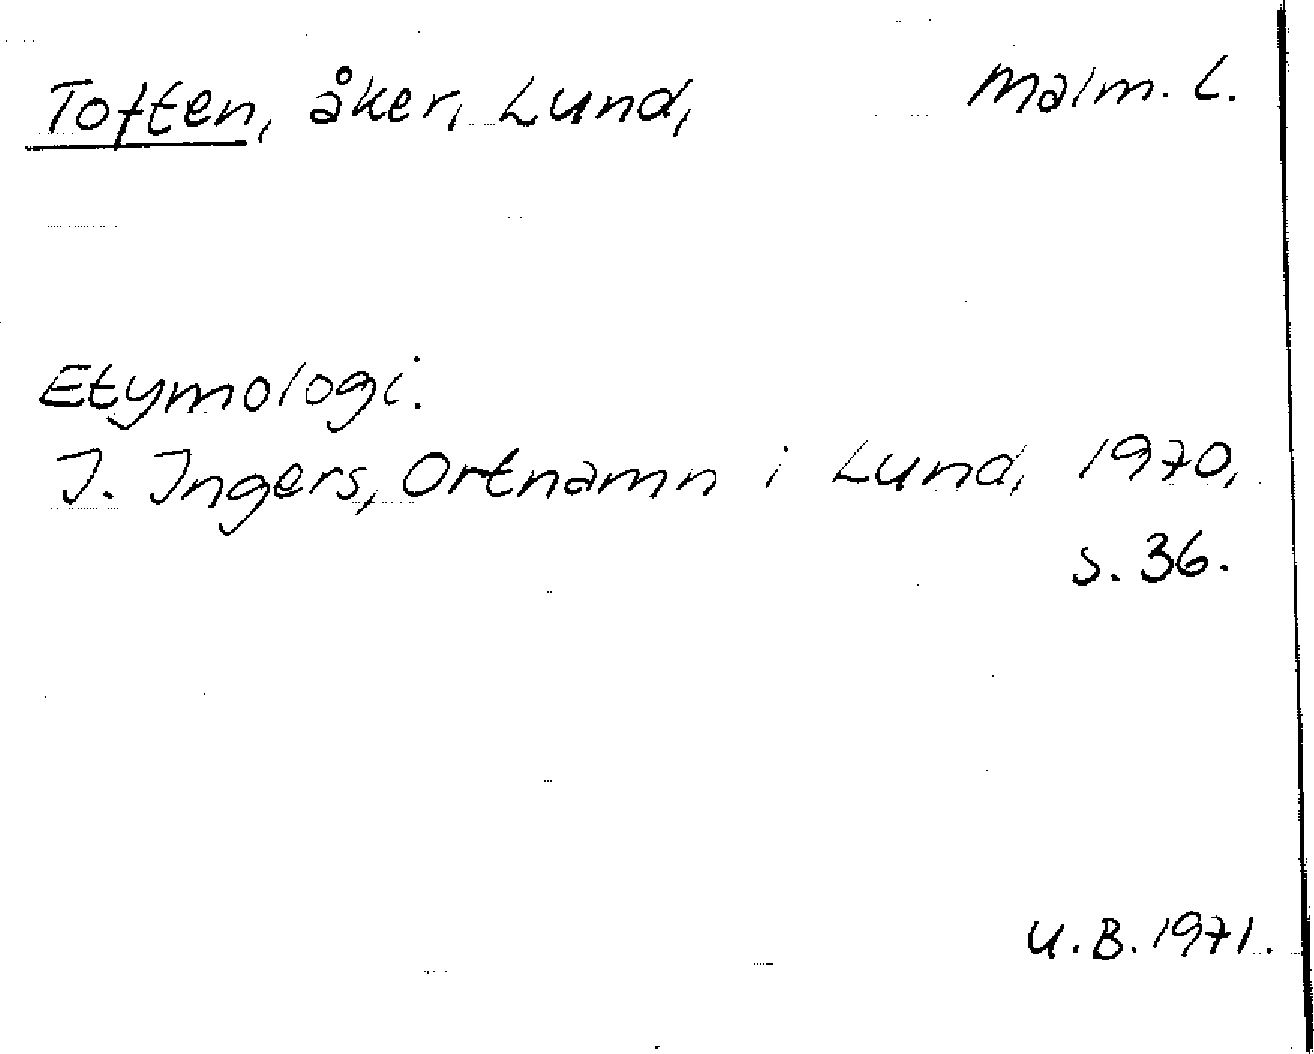 Toften, åker, Lund, Malm. L.
Etymologi.
I. Ingers, Ortnamn i Lund, 1970,
s. 36.
U.B. 1971.